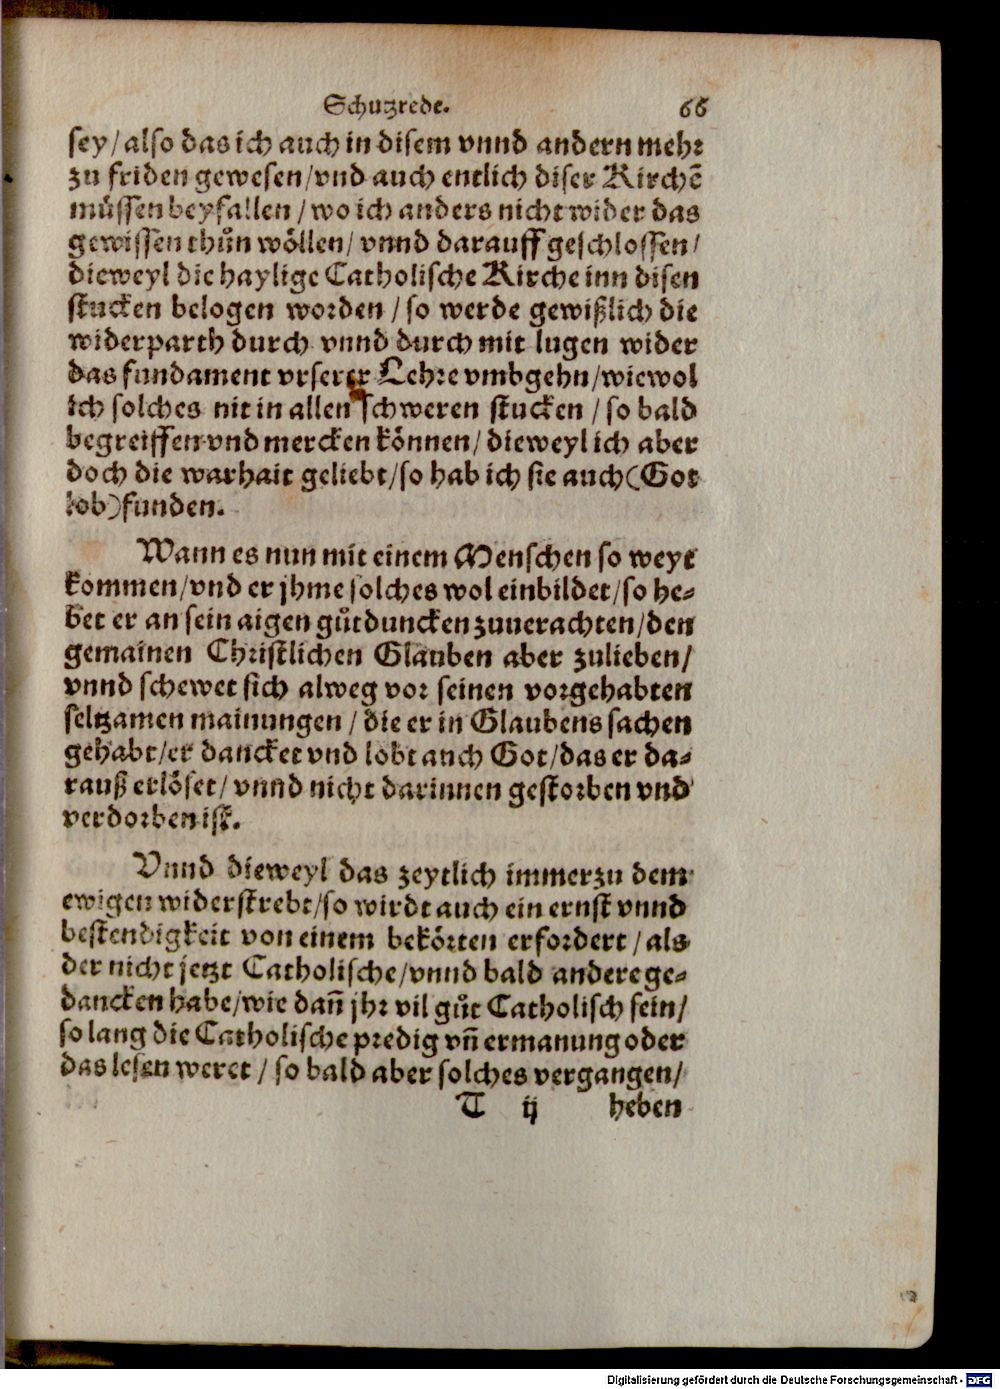 Schutzrede. 66
sey/ also das ich auch in disem vnnd andern mehr
zu friden gewesen/ vnd auch entlich diser Kirchē
müssen beyfallen / wo ich anders nicht wider das
gewissen thůn wöllen/ vnnd darauff geschlossen/
dieweyl die haylige Catholische Kirche inn disen
stucken belogen worden / so werde gewißlich die
widerparth durch vnnd durch mit lugen wider
das fundament vrserer Lehre vmbgehn/ wiewol
ich solches nit in allen schweren stucken / so bald
begreiffen vnd mercken können/ dieweyl ich aber
doch die warhait geliebt/ so hab ich sie auch (Got
lob) funden.
Wann es nun mit einem Menschen so weyt
kommen/ vnd er jhme solches wol einbildet/ so he-
bet er an sein aigen gůtduncken zuuerachten/ den
gemainen Christlichen Glauben aber zulieben/
vnnd schewet sich alweg vor seinen vorgehabten
seltzamen mainungen / die er in Glaubens sachen
gehabt/ er dancket vnd lobt auch Got/ das er da-
rauß erlöset/ vnnd nicht darinnen gestorben vnd
verdorben ist.
Vnnd dieweyl das zeytlich immerzu dem
ewigen widerstrebt/ so wirdt auch ein ernst vnnd
bestendigkeit von einem bekörten erfordert / als
der nicht jetzt Catholische/ vnnd bald andere ge-
dancken habe/ wie dañ jhr vil gůt Catholisch sein/
so lang die Catholische predig vñ ermanung oder
das lesen weret / so bald aber solches vergangen/
T ij heben
Digitalisierung gefördert durch die Deutsche Forschungsgemeinschaft - DFG